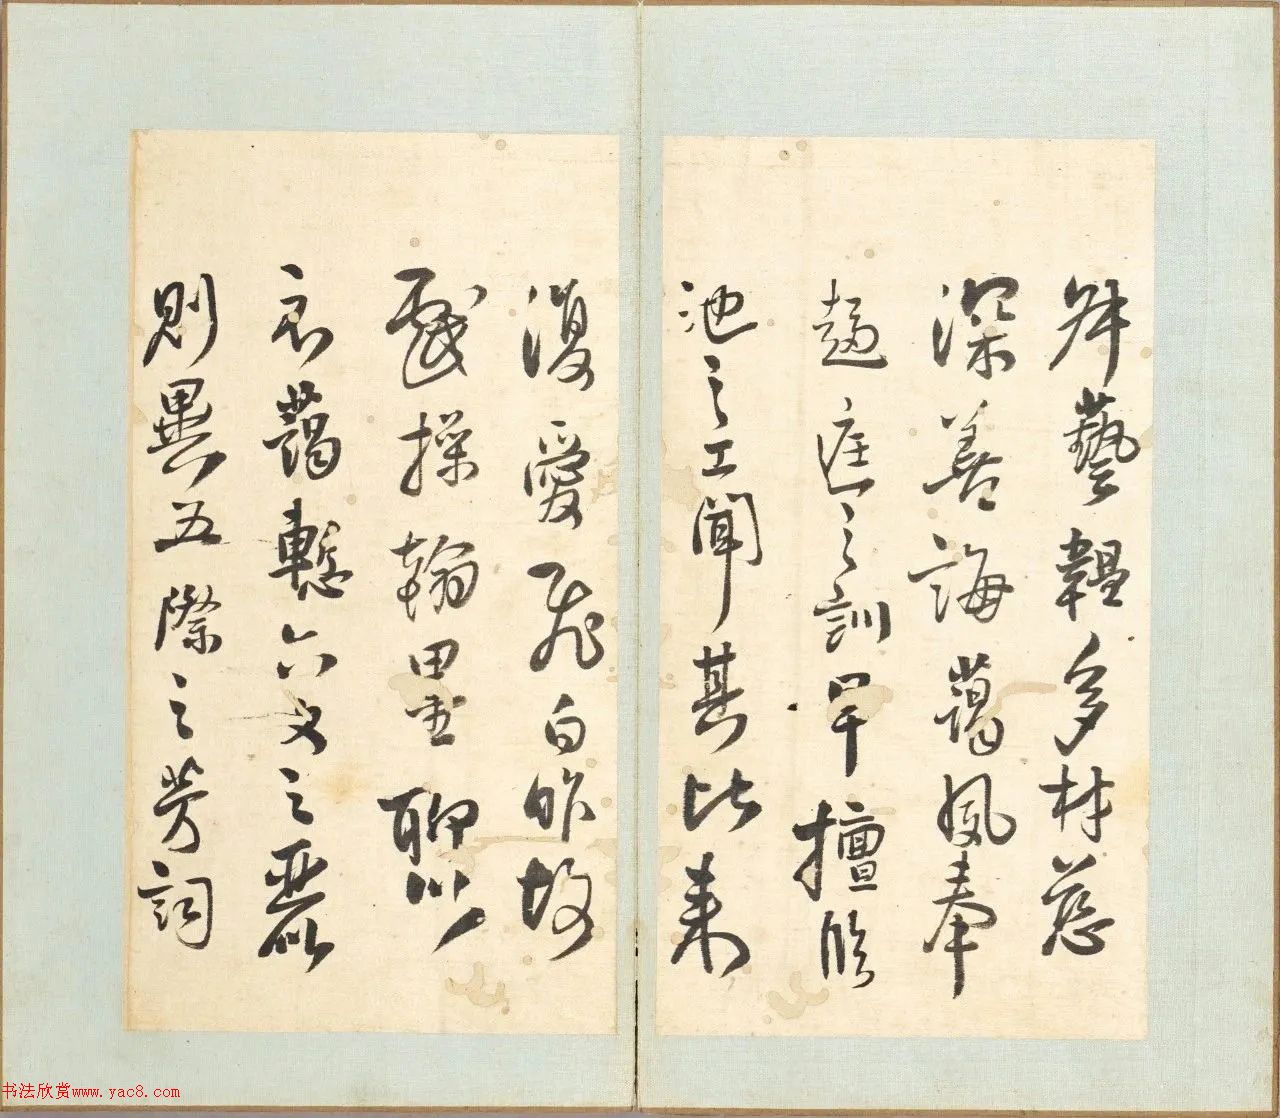 升藝韞多材慈
深善誨藹夙奉
趨庭之訓早擅臨
池之工聞其比來
復愛飛白昨故
戲操翰墨聊以
示藹慙六文之麗以
則異五際之芳詞
书法欣赏www.yac8.com